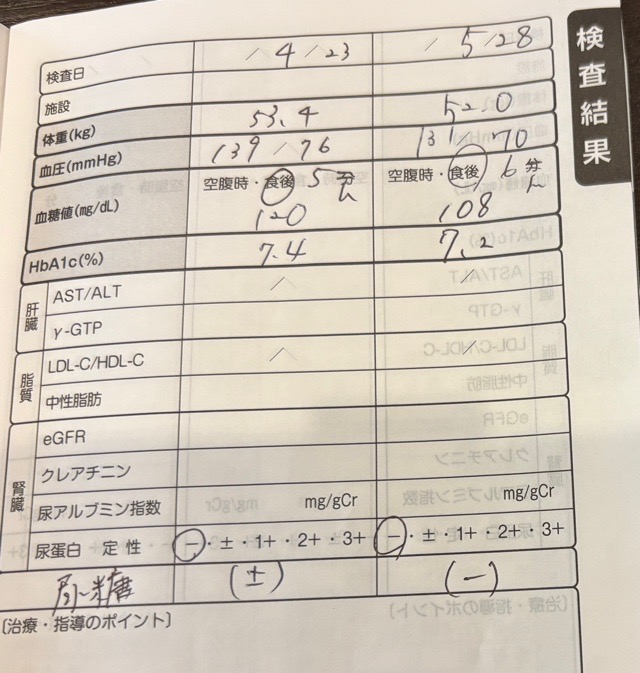 検査結果
検査日 / 4/23 / 5/28
施設
体重(kg) 53.4 52.0
血圧(mmHg) 139/76 131/70
血糖値(mg/dL) 空腹時・食後 5 分 h 空腹時・食後 6 分 h
120 108
HbA1c(%) 7.4 7.2
肝臓 AST/ALT / /
γ-GTP
脂質 LDL-C/HDL-C / /
中性脂肪
腎臓 eGFR
クレアチニン
尿アルブミン指数 mg/gCr mg/gCr
尿蛋白 定性 −・±・1+・2+・3+ −・±・1+・2+・3+
尿糖 (±) (−)
〔治療・指導のポイント〕